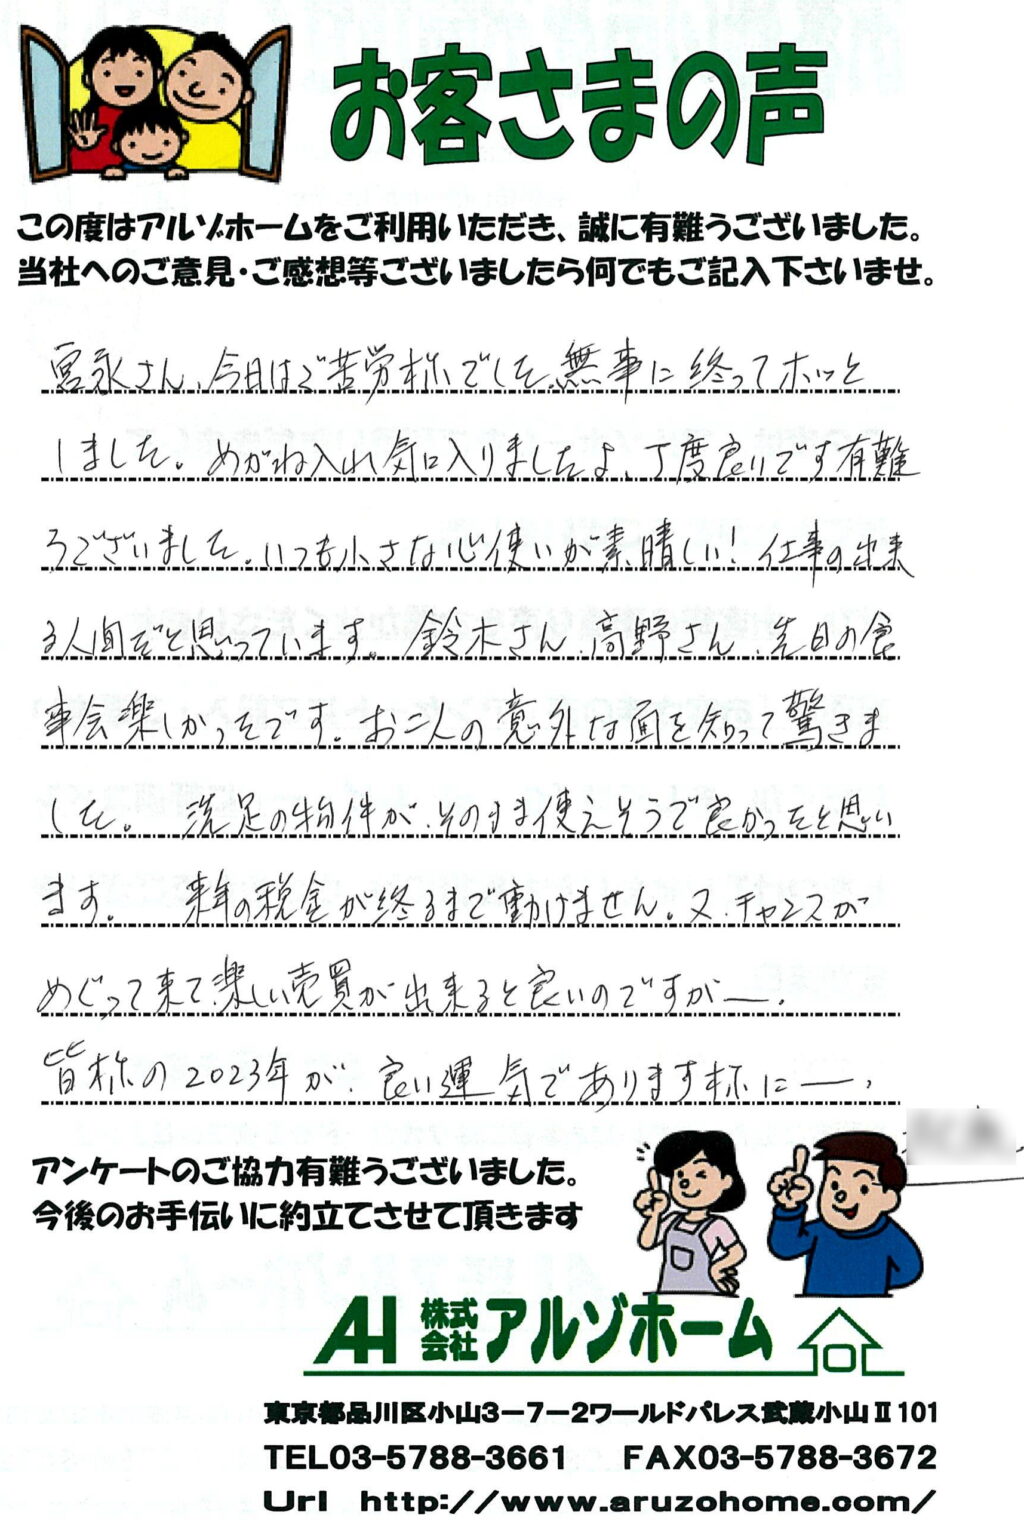 お客さまの声
この度はアルゾホームをご利用いただき、誠に有難うございました。
当社へのご意見・ご感想等ございましたら何でもご記入下さいませ。
宮永さん、今日はご苦労様でした。無事に終ってホッと
しました。めがね入れ気に入りましたよ、丁度良いです有難
うございました。いつも小さな心使いが素晴しい！仕事の出来
る人間だと思っています。鈴木さん、高野さん、先日の食
事会楽しかったです。お二人の意外な面を知って驚きま
した。洗足の物件が、そのまま使えそうで良かったと思い
ます。来年の税金が終るまで動けません。又、チャンスが
めぐって来て楽しい売買が出来ると良いのですがー、
皆様の2023年が、良い運気であります様にー、
アンケートのご協力有難うございました。
今後のお手伝いに約立てさせて頂きます
AH 株式会社 アルゾホーム
東京都品川区小山3-7-2ワールドパレス武蔵小山Ⅱ101
TEL03-5788-3661 FAX03-5788-3672
Url http://www.aruzohome.com/